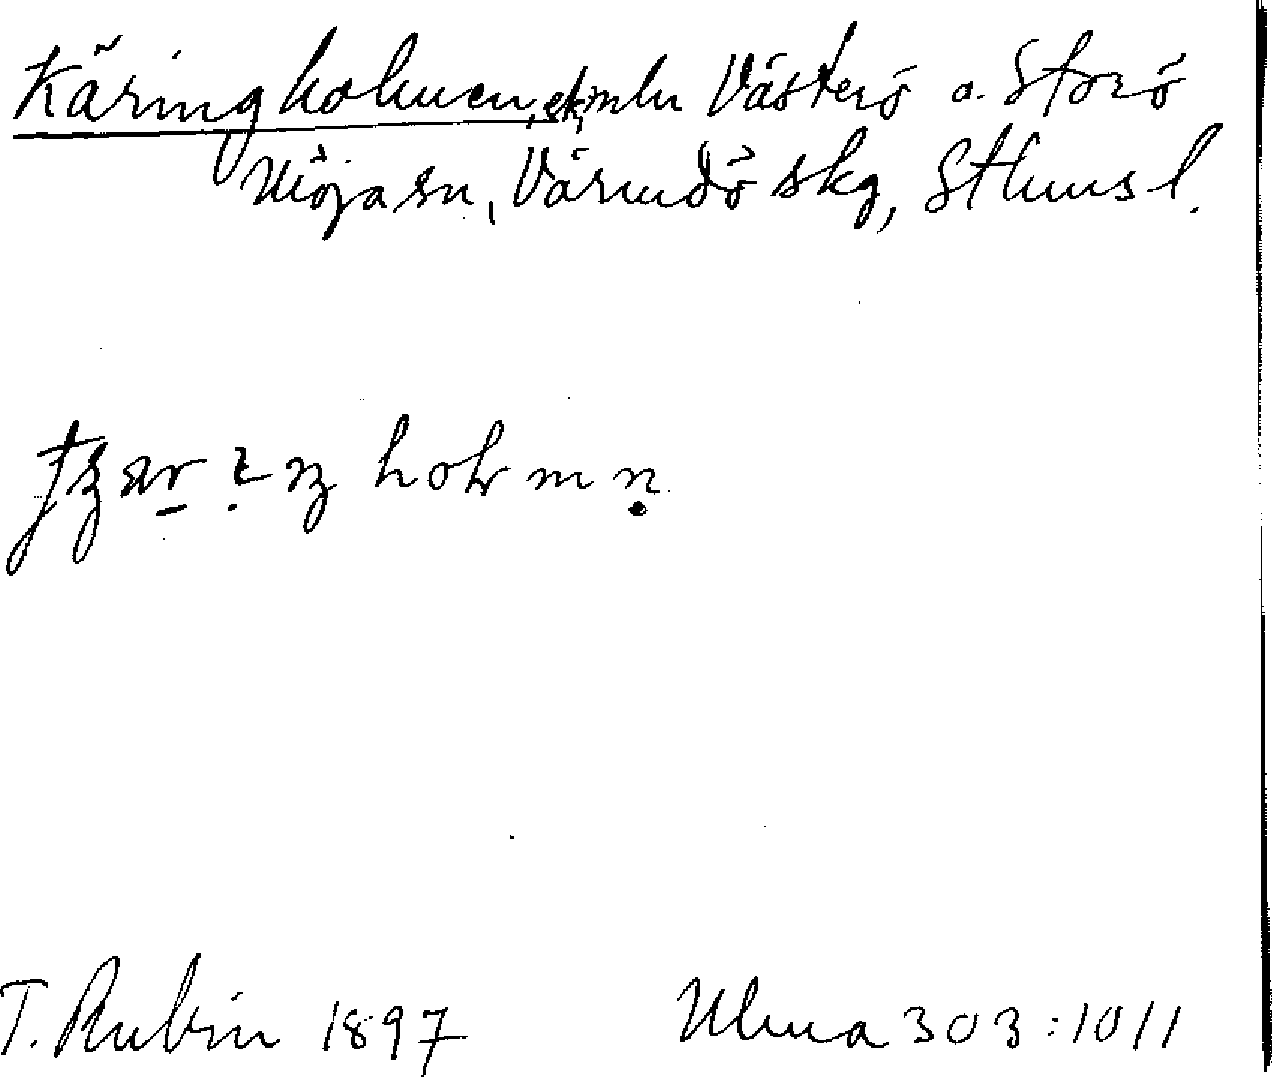 Käringholmen, sk, mln Västerö o. Storö
Möja sn, Värmdö skg, Sthms l.
holmn
T. Rubin 1897 Ulma 303:10 11